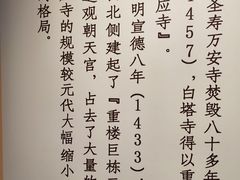 圣寿万安寺焚毁八十多年
1457），白塔寺得以重
应寺』。
明宣德八年（1433）
北侧建起了『重楼巨栋
观朝天宫，占去了大量的
寺的规模较元代大幅缩小
格局。